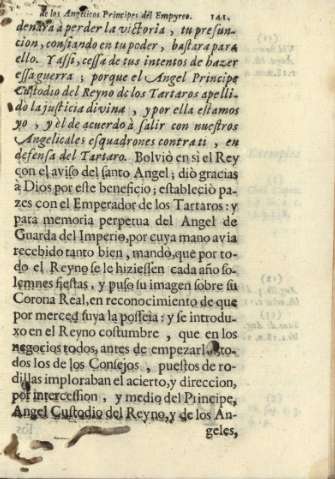 de los Angelicos Principes del Empyreo. 141.
denàra à perder la victoria, tu presun-
cion, confiando en tu poder, bastara para
ello. Y assi, cessa de tus intentos de hazer
essa guerra; porque el Angel Principe
Custodio del Reyno de los Tartaros apelli-
dò la justicia divina, y por ella estamos
yo, y èl de acuerdo à salir con nuestros
Angelicales esquadrones contra ti, en
defensa del Tartaro. Bolviò en sì el Rey
con el aviso del santo Angel; diò gracias
à Dios por este beneficio; estableciò pa-
zes con el Emperador de los Tartaros: y
para memoria perpetua del Angel de
Guarda del Imperio, por cuya mano avia
recebido tanto bien, mandò, que por to-
do el Reyno se le hiziessen cada año so-
lemnes fiestas, y puso su imagen sobre su
Corona Real, en reconocimiento de que
por merced suya la posseia: y se introdu-
xo en el Reyno costumbre, que en los
negocios todos, antes de empezarlos, to-
dos los de los Consejos, puestos de ro-
dillas imploraban el acierto, y direccion,
por intercession, y medio del Principe,
Angel Custodio del Reyno, y de los An-
geles,